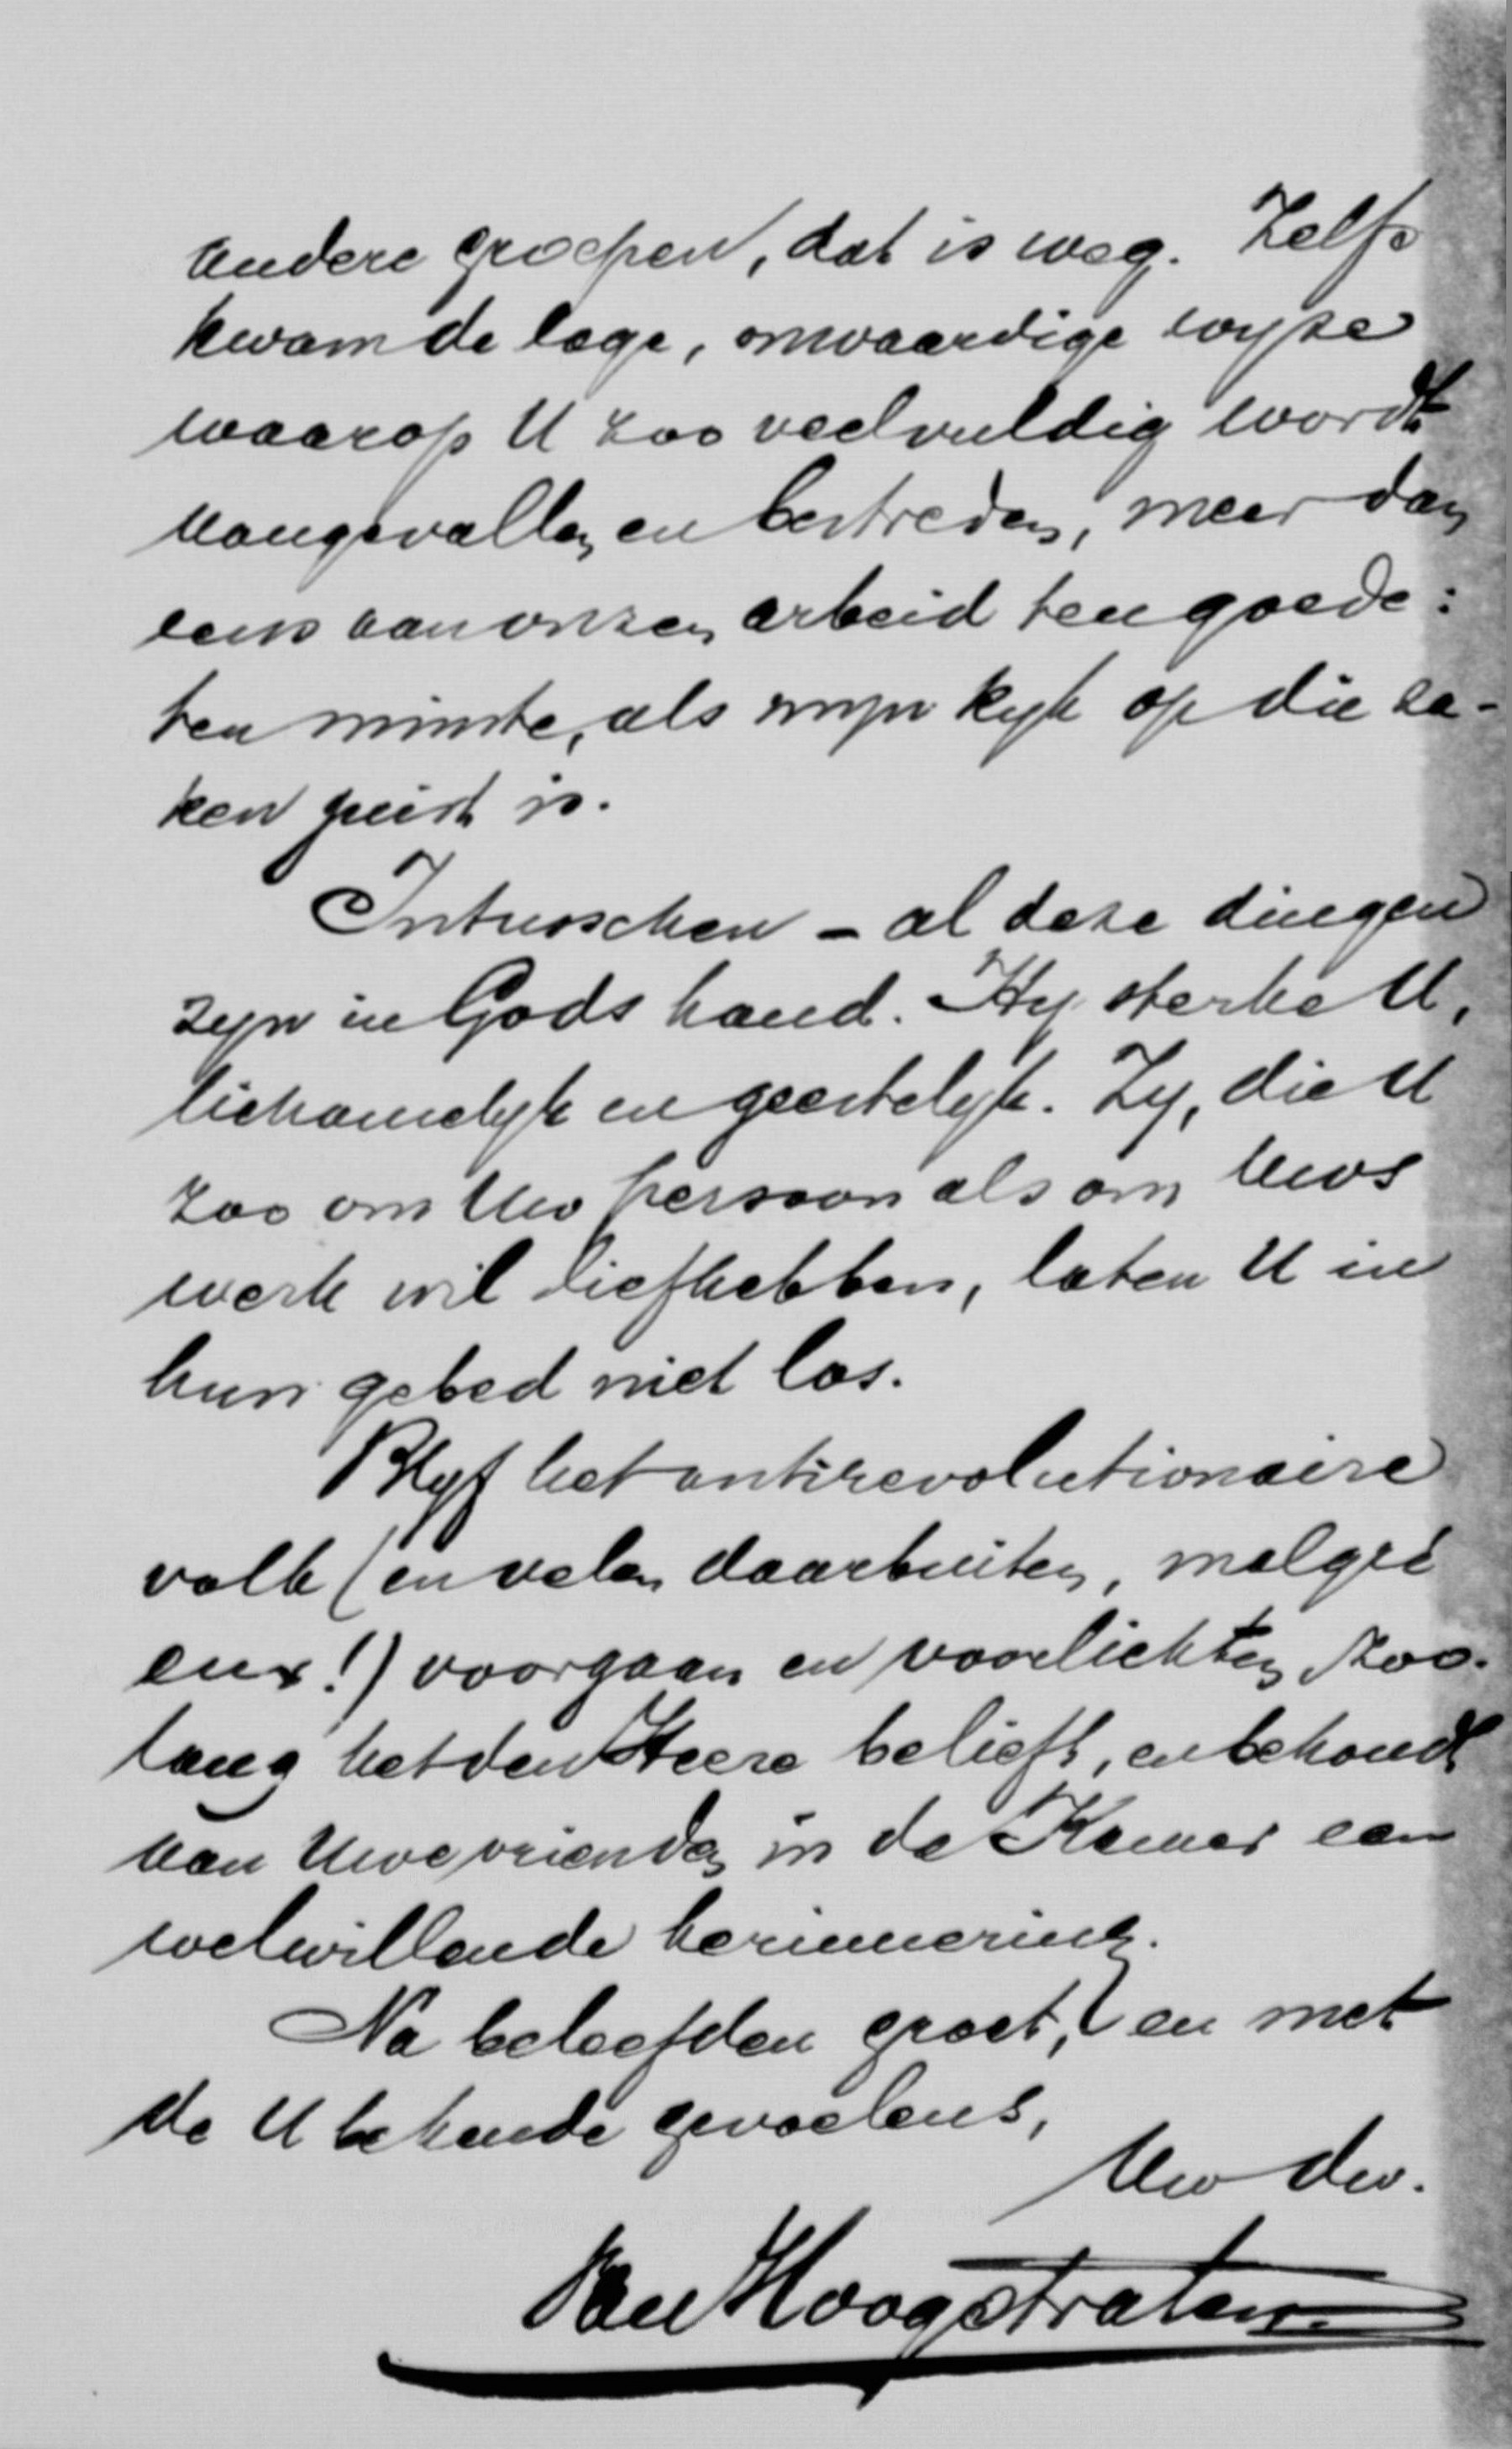 andere groepen, dat is weg. Zelfs
kwam de lage, onwaardige wyze
waarop U zoo veelvuldig wordt
aangevallen en bestreden, meer dan
eens aan onzen arbeid ten goede:
ten minste, als myn kyk op die za-
ken juist is.
Intusschen - al deze dingen
zyn in Gods hand. Hy sterke U,
lichamelyk en geestelyk. Zy, die U
zoo om Uw persoon als om Uws
werk wil liefhebben, laten U in
hun gebed niet los.
Blyf het antirevolutionaire
volk (en velen daarbuiten, malgré
eux!) voorgaan en voorlichten zoo-
lang het den Heere belieft, en behoudt
aan Uwe vrienden in de Kamer een
welwillende herinnering.
Na beleefden groet, en met
de U bekende gevoelens,
Uw dw.
Van Hoogstraten.